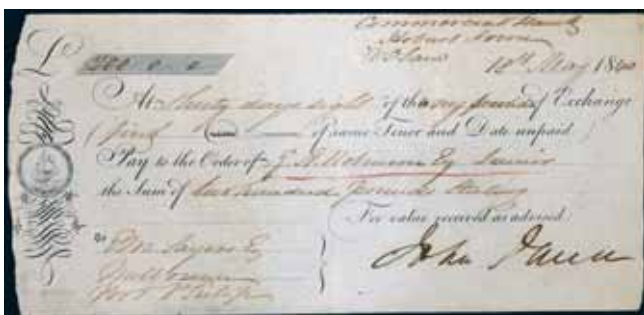 Commercial Bank
Hobart Town
18th May 1840
£ 200 . 0 . 0
At thirty days sight of this my second of Exchange
(first of same Tenor and Date unpaid
Pay to the Order of Esq Junior
the Sum of two hundred pounds Sterling
For value received as advised
To Esq
Melbourne
Port Philip
John Dunn